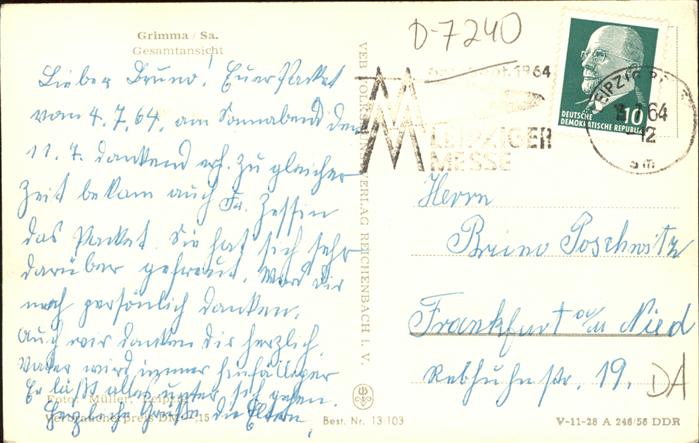 Grimma / Sa.
Gesamtansicht
Lieber Bruno! Euer Packet
vom 4.7.64, am Sonnabend den
11. 7. dankend erh. Zu gleicher
Zeit bekam auch Fr. Zessin
das Packet. Sie hat sich sehr
darüber gefreut. Word dir
noch persönlich danken.
Auch wir danken dir herzlich.
Vater wird immer hinfälliger
Er läßt alles unter sich gehen.
Herzliche Grüße die Eltern
Foto: Müller, Leipzig
Verbraucherpreis DM -.15
VEB VOLKSKUNSTVERLAG REICHENBACH I. V.
Best. Nr. 13 103
D-7240
1964
LEIPZIGER
MESSE
DEUTSCHE
DEMOKRATISCHE REPUBLIK
10
LEIPZIG
64
12
Herrn
Bruno Poschwitz
Frankfurt a/M Nied
Rebhuhnstr. 19.
DA
V-11-28 A 246/56 DDR